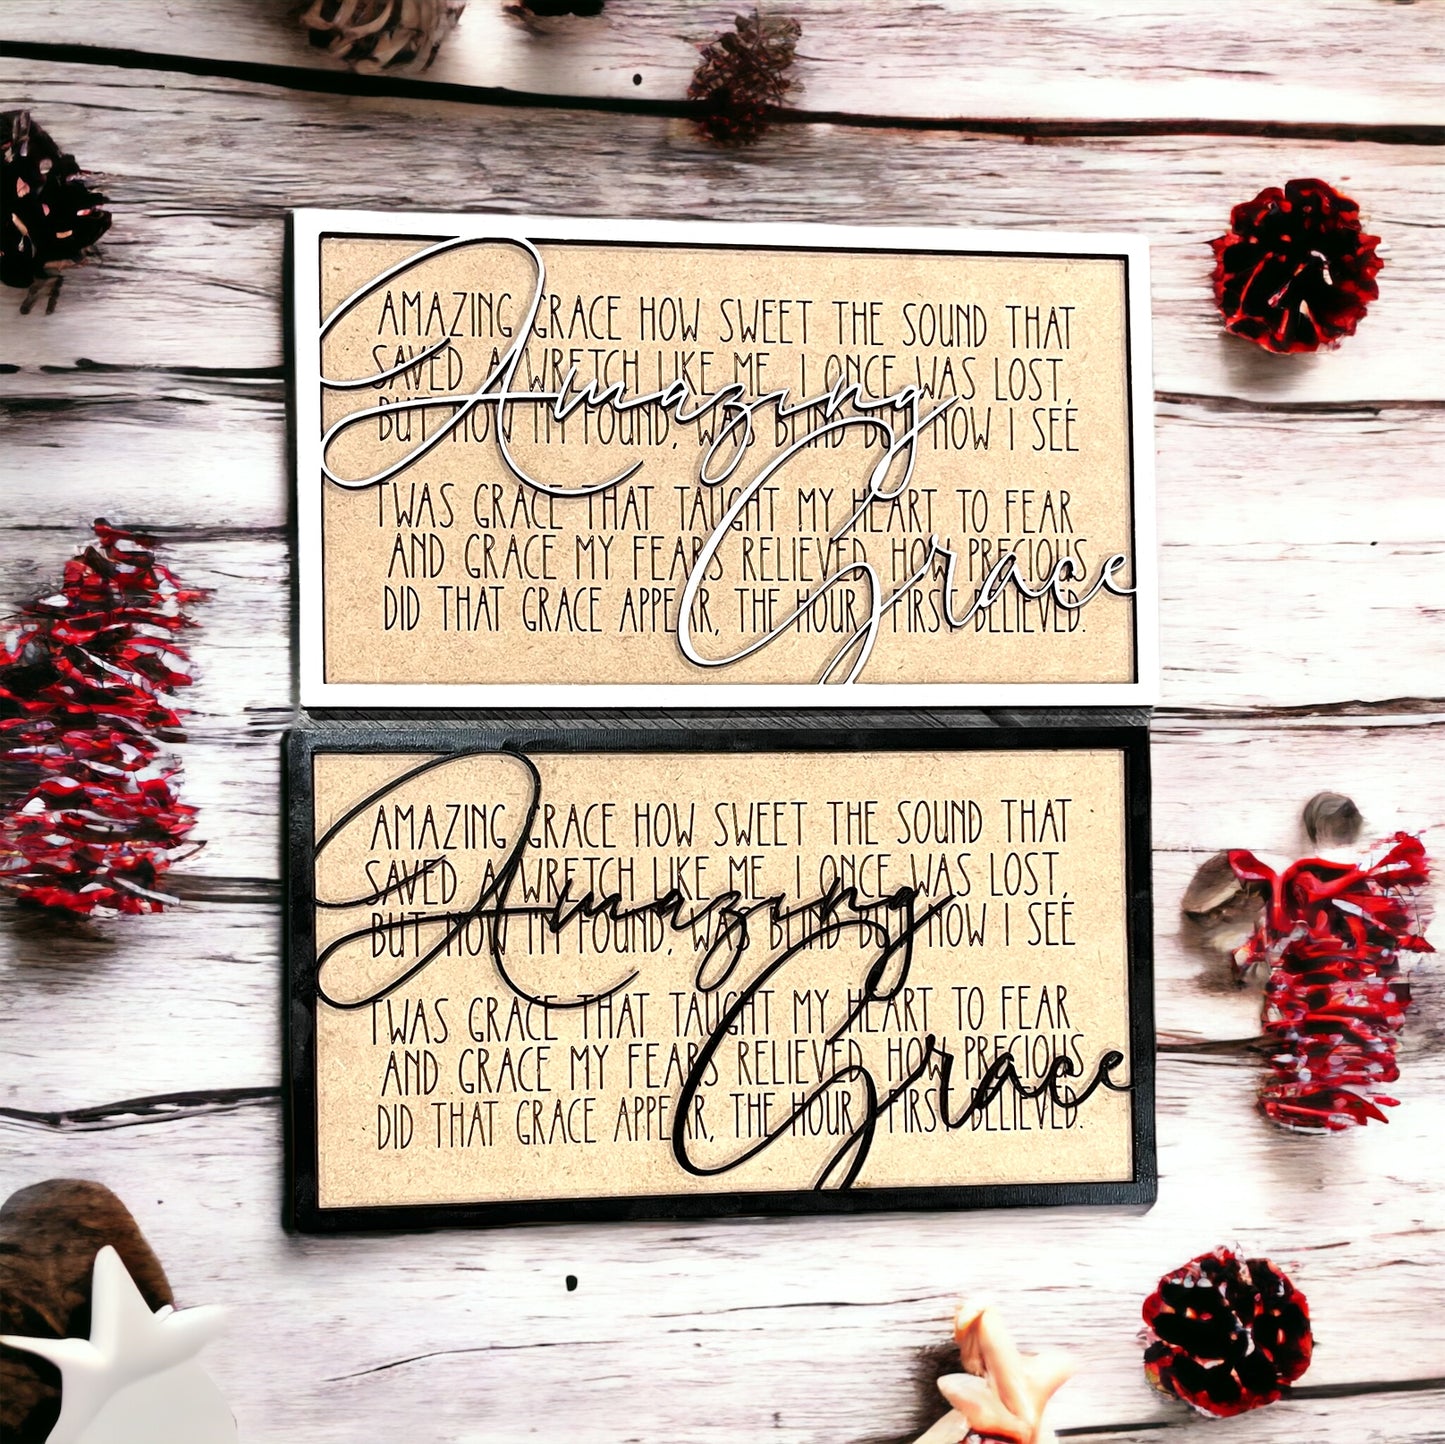 AMAZING GRACE HOW SWEET THE SOUND THAT
SAVED A WRETCH LIKE ME. I ONCE WAS LOST,
BUT NOW I'M FOUND, WAS BLIND BUT NOW I SEE
TWAS GRACE THAT TAUGHT MY HEART TO FEAR
AND GRACE MY FEARS RELIEVED. HOW PRECIOUS
DID THAT GRACE APPEAR, THE HOUR I FIRST BELIEVED.
Amazing
Grace
AMAZING GRACE HOW SWEET THE SOUND THAT
SAVED A WRETCH LIKE ME. I ONCE WAS LOST,
BUT NOW I'M FOUND, WAS BLIND BUT NOW I SEE
TWAS GRACE THAT TAUGHT MY HEART TO FEAR
AND GRACE MY FEARS RELIEVED. HOW PRECIOUS
DID THAT GRACE APPEAR, THE HOUR I FIRST BELIEVED.
Amazing
Grace